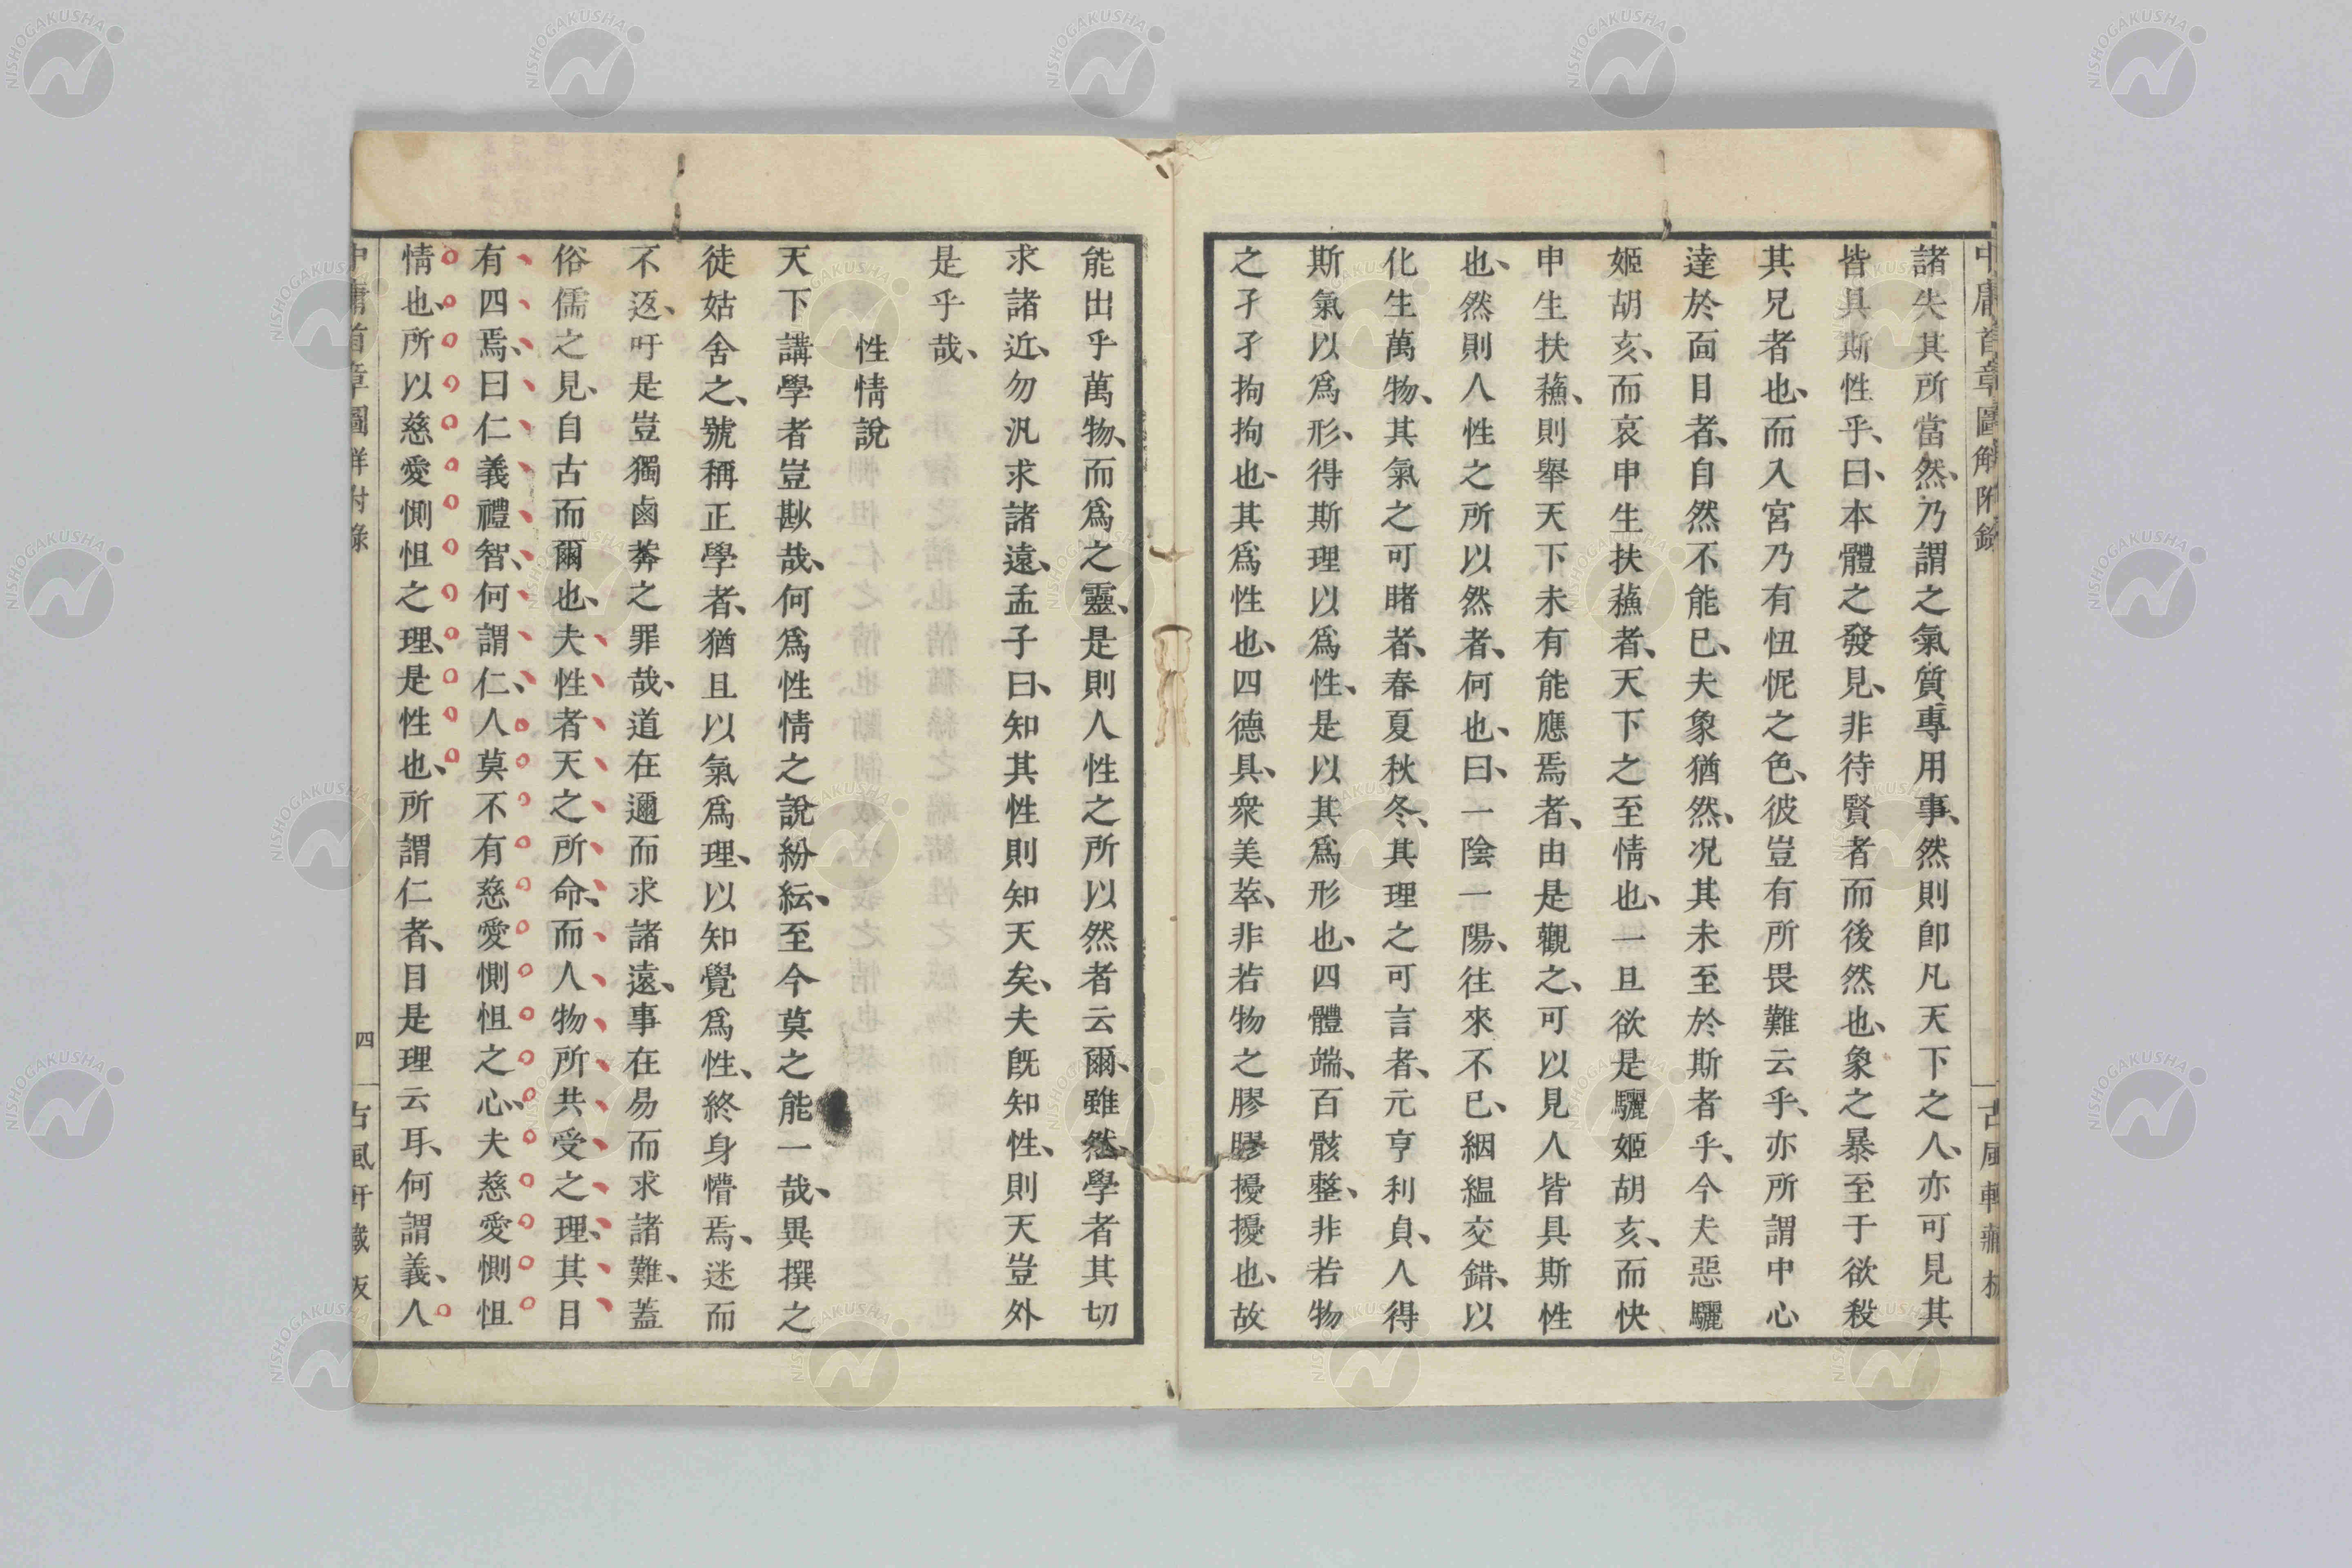 中庸首章圖解附錄
古風軒藏板
諸失其所當然、乃謂之氣質專用事、然則卽凡天下之人、亦可見其
皆具斯性乎、曰、本體之發見、非待賢者而後然也、象之暴至于欲殺
其兄者也、而入宮乃有忸怩之色、彼豈有所畏難云乎、亦所謂中心
達於面目者、自然不能已、夫象猶然、况其未至於斯者乎、今夫惡驪
姬胡亥、而哀申生扶蘓者、天下之至情也、一旦欲是驪姬胡亥、而快
申生扶蘓、則舉天下未有能應焉者、由是觀之、可以見人皆具斯性
也、然則人性之所以然者、何也、曰、一陰一陽、往來不已、絪縕交錯、以
化生萬物、其氣之可睹者、春夏秋冬、其理之可言者、元亨利貞、人得
斯氣以爲形、得斯理以爲性、是以其爲形也、四體端、百骸整、非若物
之孑孑拘拘也、其爲性也、四德具、衆美萃、非若物之膠膠擾擾也、故
能出乎萬物、而爲之靈、是則人性之所以然者云爾、雖然、學者其切
求諸近、勿汎求諸遠、孟子曰、知其性則知天矣、夫旣知性、則天豈外
是乎哉、
性情說
天下講學者豈尠哉、何爲性情之說紛紜、至今莫之能一哉、異撰之
徒姑舍之、號稱正學者、猶且以氣爲理、以知覺爲性、終身懵焉、迷而
不返、吁是豈獨鹵莽之罪哉、道在邇而求諸遠、事在易而求諸難、蓋
俗儒之見、自古而爾也、夫性者天之所命、而人物所共受之理、其目
有四焉、曰仁義禮智、何謂仁、人莫不有慈愛惻怛之心、夫慈愛惻怛
情也、所以慈愛惻怛之理、是性也、所謂仁者、目是理云耳、何謂義、人
中庸首章圖解附錄
四
古風軒藏板